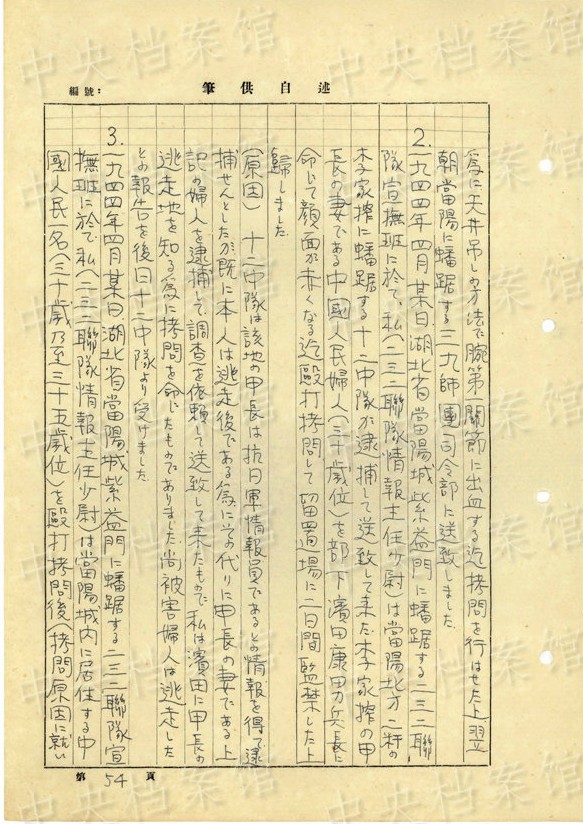 中央档案馆
編號：
筆供自述
為に天井吊しの方法で腕第一関節に出血する迄拷問を行はせた上翌
朝當陽に蟠踞する三九師團司令部に送致しました
2. 一九四四年四月某日湖北省當陽城紫蓋門に蟠踞する二三二聯
隊宣撫班に於て、私（二三二聯隊情報主任少尉）は當陽北方二粁の
李家搾に蟠踞する十二中隊が逮捕して送致して来た李家搾の甲
長の妻である中國人民婦人（三十歳位）を部下濱田康男兵長に
命じて顔面が赤くなる迄毆打拷問して留置場に一日間監禁した上
歸しました
（原因）十二中隊は該地の甲長は抗日軍情報員であるとの情報を得て逮
捕せんとしたが既に本人は逃走後である為にその代りに甲長の妻である上
記の婦人を逮捕して調査を依頼して送致して来たもので私は濱田に甲長の
逃走地を知る為に拷問を命じたものでありました尚被害婦人は逃走した
との報告を後日十二中隊より受けました
3. 一九四四年四月某日湖北省當陽城紫蓋門に蟠踞する二三二聯隊宣
撫班に於て私（二三二聯隊情報主任少尉）は當陽城内に居住する中
國人民一名（三十歳乃至三十五歳位）を毆打拷問後（拷問原因に就い
第 54 頁